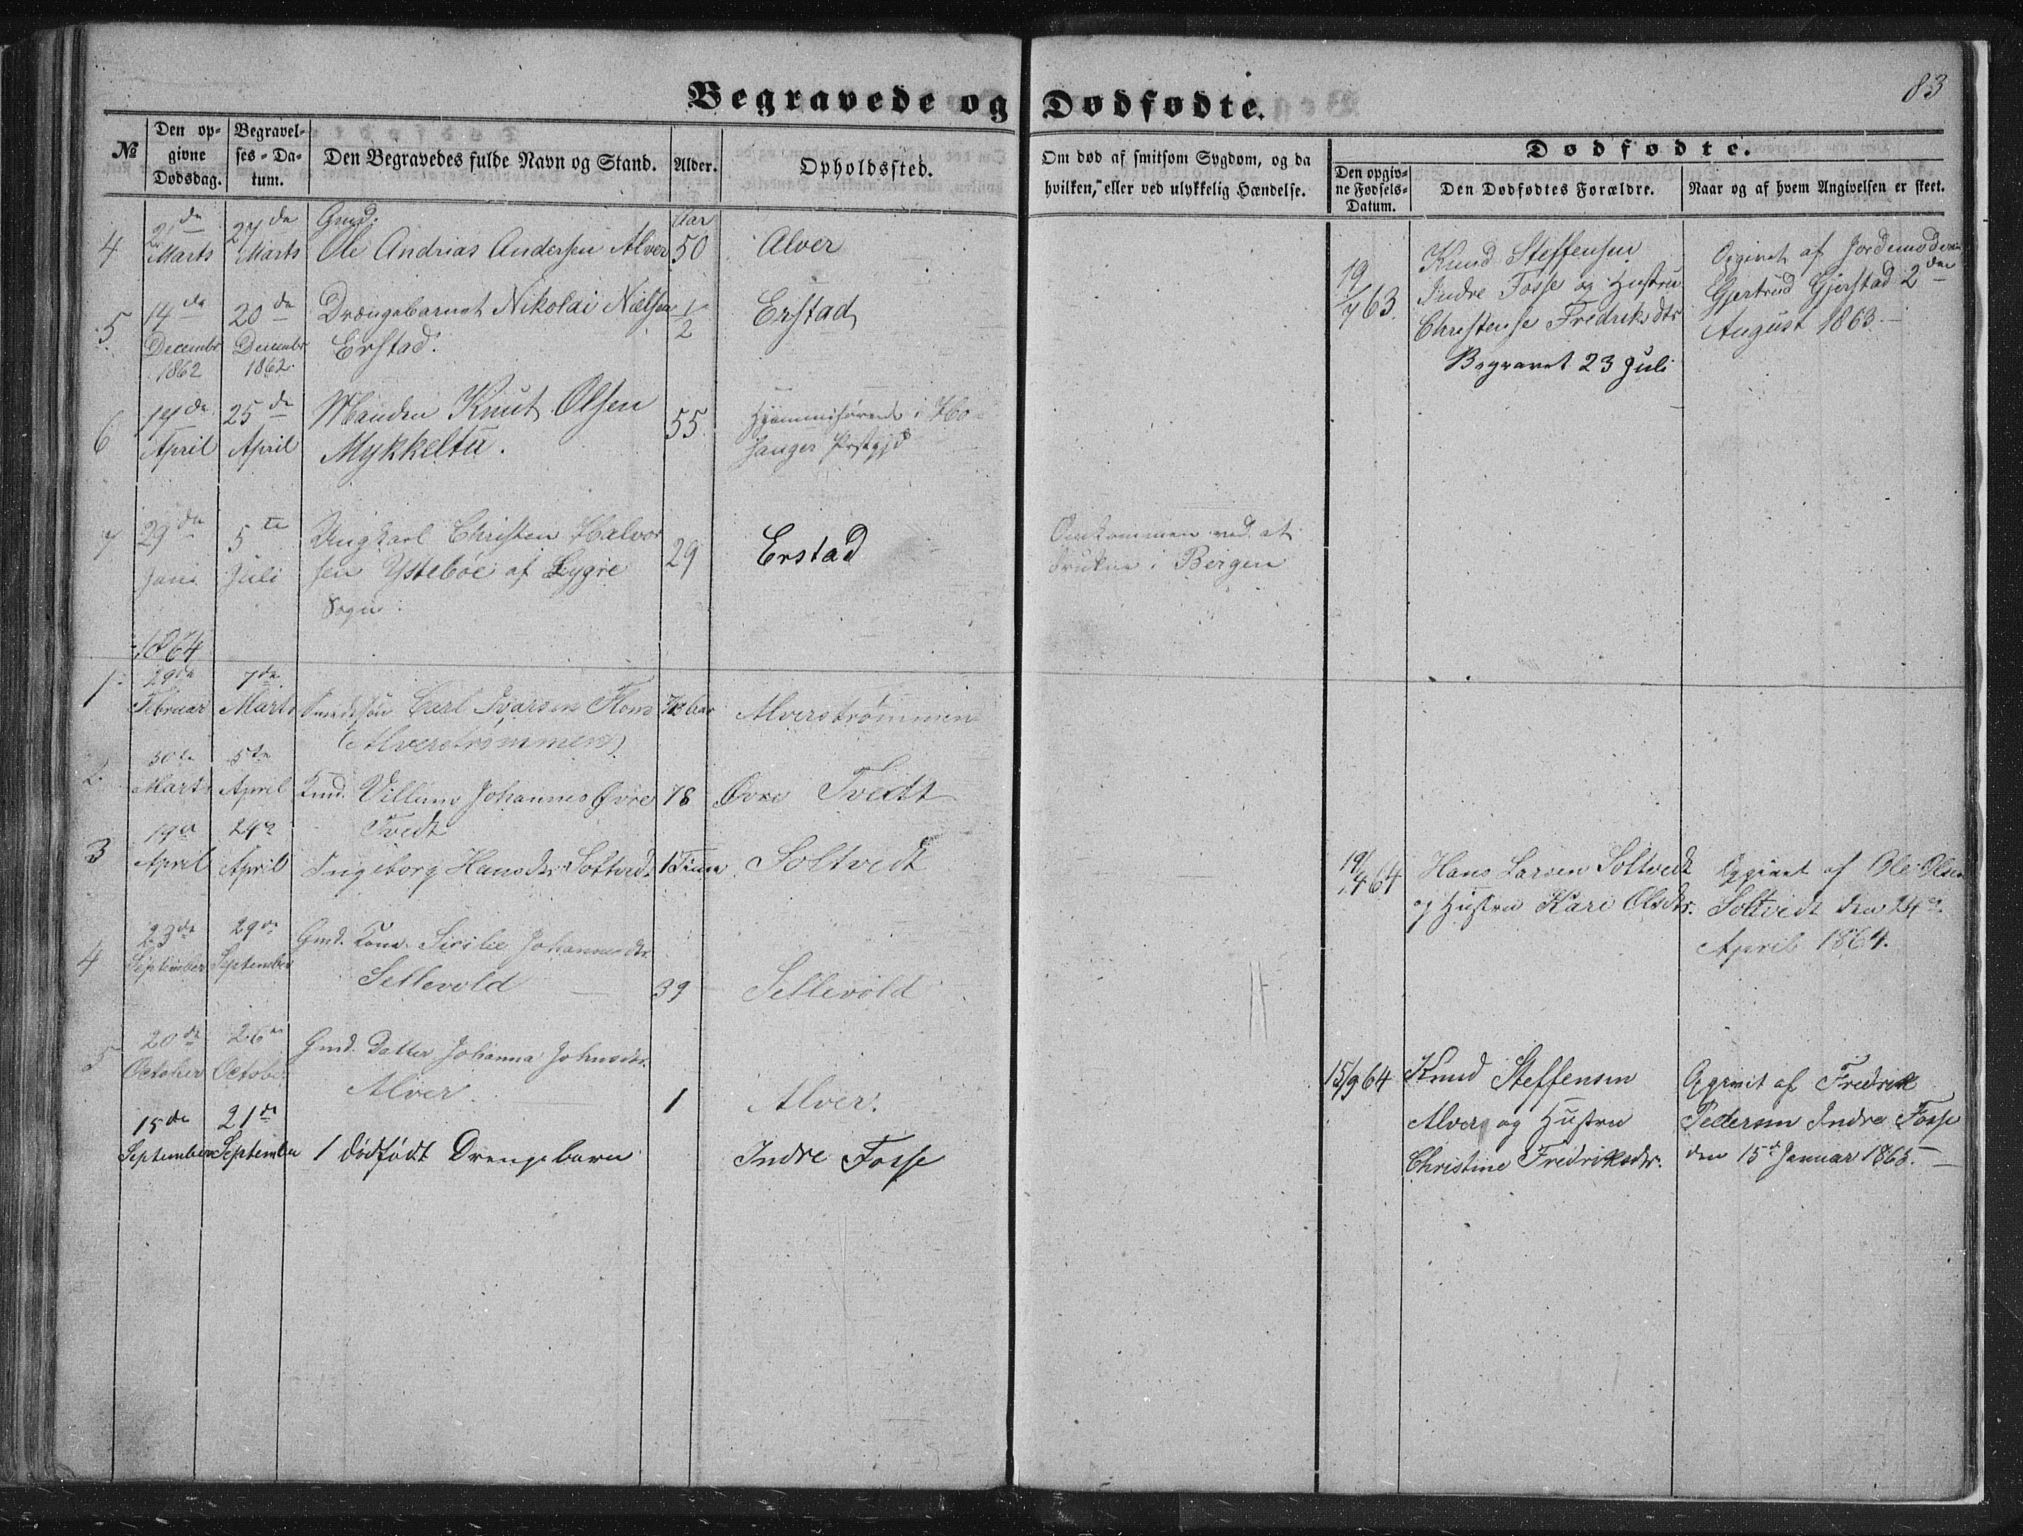 83
Begravede og Dødfødte.
№
Den op-
givne
Dødsdag.
Begravel-
ses-Da-
tum.
Den Begravedes fulde Navn og Stand.
Alder.
Opholdssted.
Om død af smitsom Sygdom, og da
hvilken, eller ved ulykkelig Hændelse.
Dødfødte.
Den opgiv-
ne Fødsels-
Datum.
Den Dødfødtes Forældre.
Naar og af hvem Angivelsen er skeet.
4
21de
Marts
27de
Marts
Gmd.
Ole Andrias Andersen Alver
Aar
50
Alver
5
14de
Decembr
1862
20de
Decembr
1862.
Drængebarnet Nikolai Nielsen
Erstad.
1/2
Erstad
19/7 63.
Knud Steffensen
Indre Fosse og Hustru
Christense Fredriksdtr
Begravet 23 Juli
Opgivet af Jordemoderen
Gjertrud Gjerstad 2den
August 1863.
6
17de
April
25de
April
Manden Knut Olsen
Mykkeltu.
55
Hjemmehørende i Ho-
sanger Prstgjd
7
29de
Juni
5te
Juli
Ungkarl Christen Halvor
sen Ystebøe af Lygre
Sogn.
29
Erstad
Omkommen ved at
drukne i Bergen
1864
1
29de
Februar
7de
Marts
Carl Ivarsen Flom
(Alverstrømmen)
Aar
Alverstrømmen
2
30te
Marts
5te
April
Villum Johannes Øvre
Tvedt
78
Øvre Tvedt
3
19de
April
24de
April
Ingeborg Hansdtr Soltvedt
1 Time
Soltvedt
19/4 64
Hans Larsen Soltvedt
og Hustru Kari Olsdtr.
Opgivet af Ole Olsen
Soltvedt den 24de
April 1864.
4
23de
September
29de
September
Gmd. Kone Sicilie Johannesdtr
Sellevold
39
Sellevold
5
20de
October
26de
October
Gmd. Datter Johanna Johnsdtr.
Alver.
1
Alver.
15/9 64
Knud Steffensen
Alver og Hustru
Christine Fredriksdtr.
Opgivet af Fredrik
Pedersen Indre Fosse
den 15de Januar 1865.
15de
September
21de
September
1 dødfødt Drengebarn
Indre Fosse